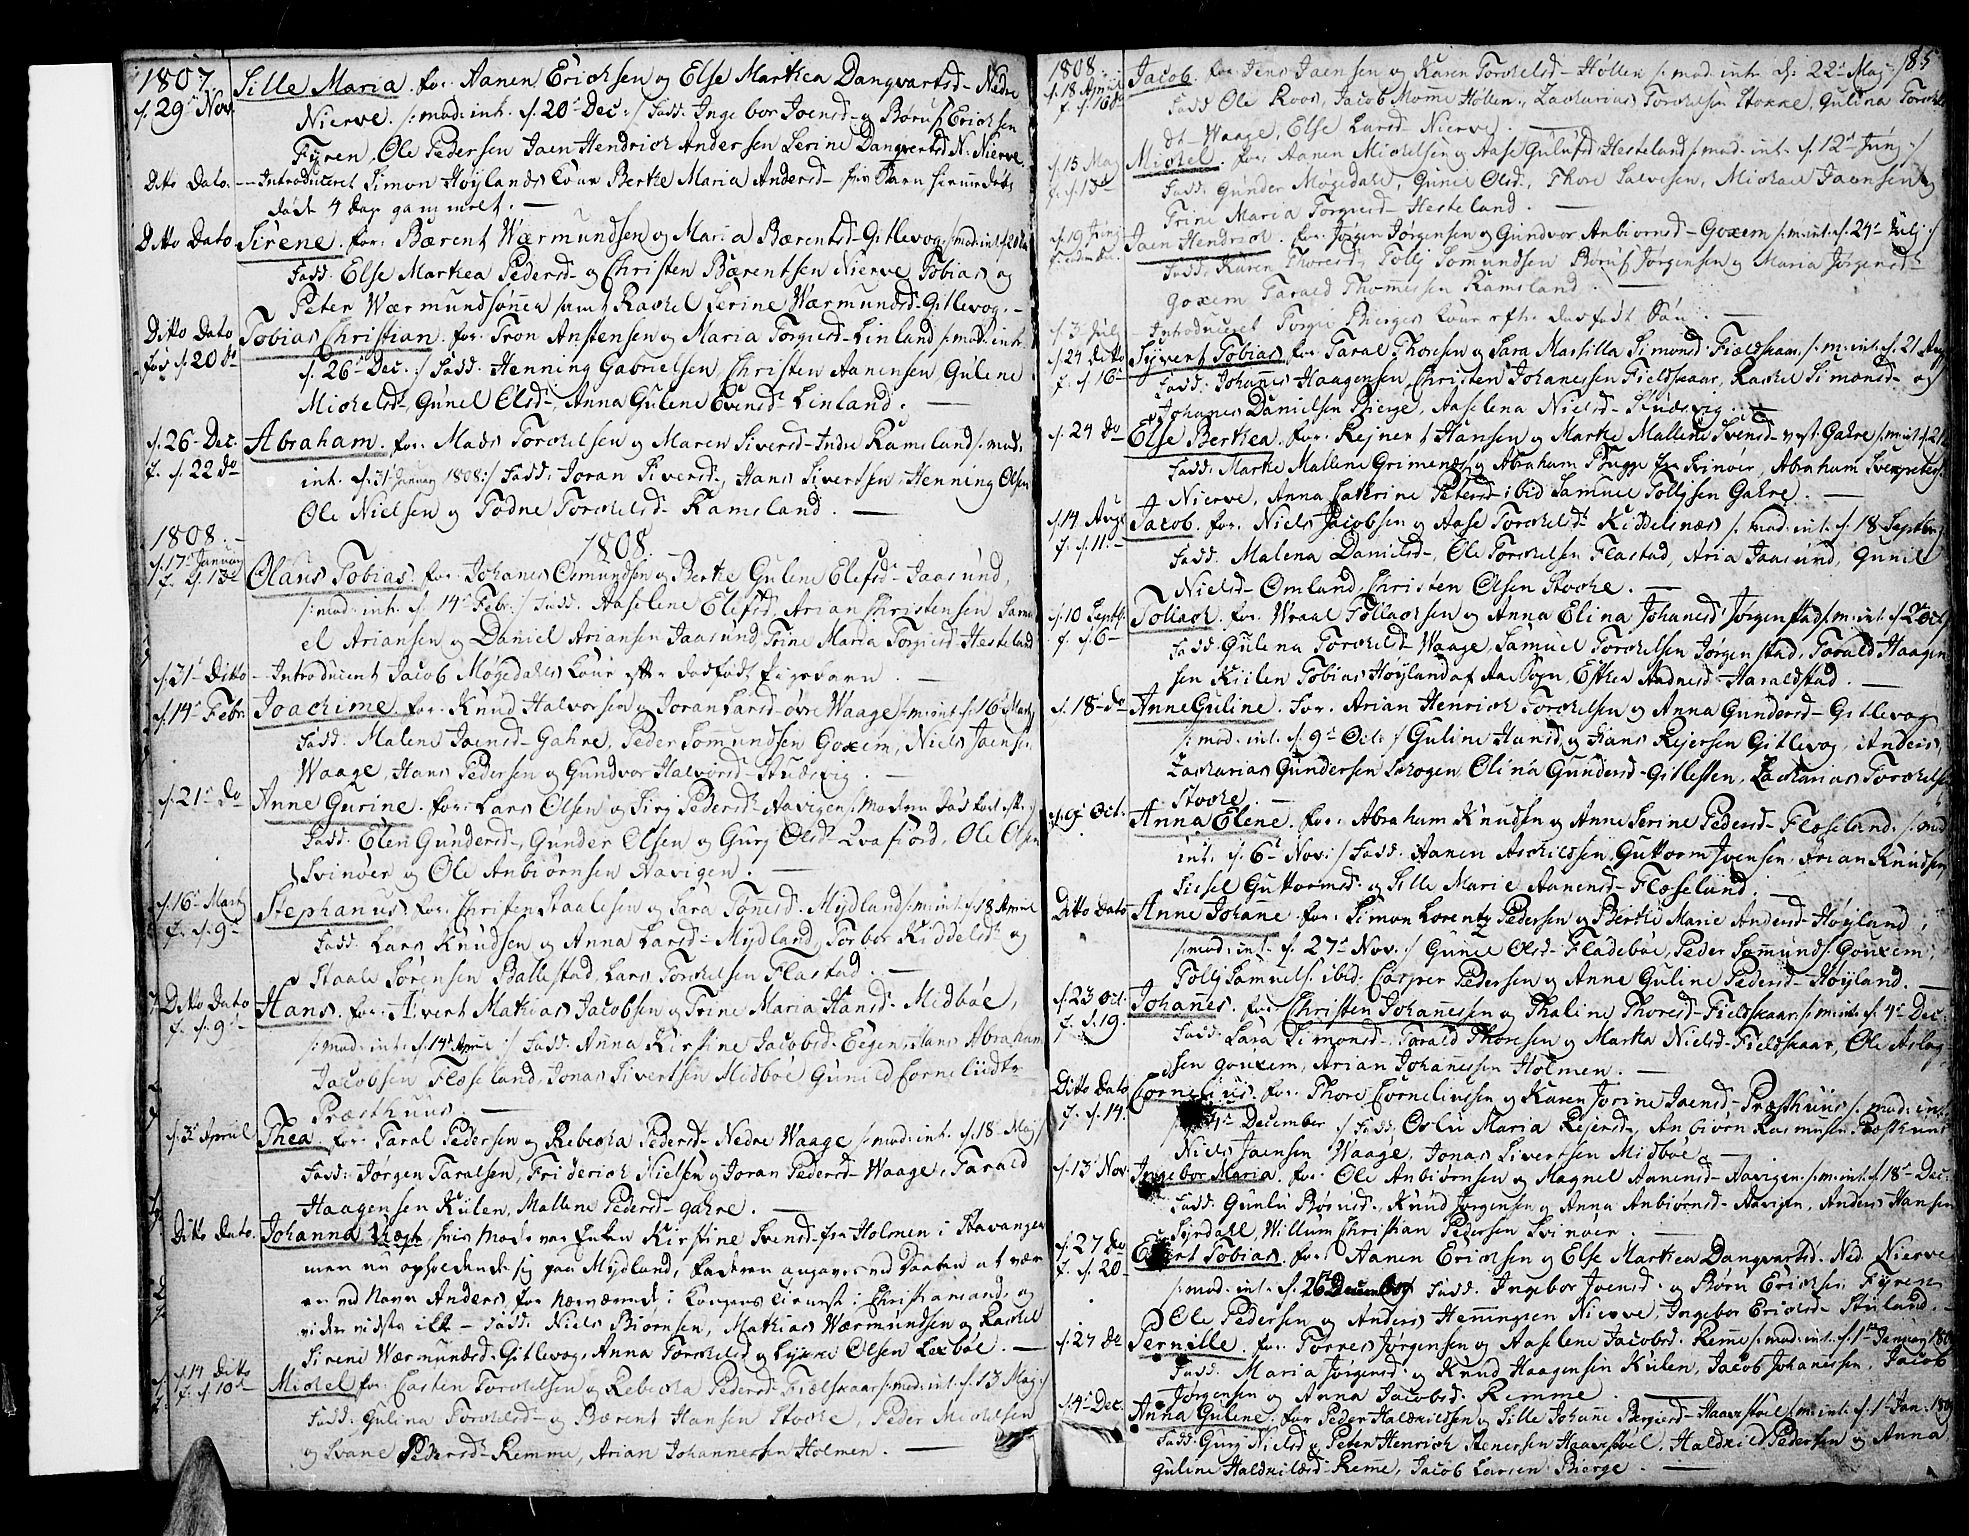 1807
d. 29d Nov. Sille Maria. for: Aanen Erichsen og Else Marthea Danqvartsd- Nedre
Nierve. /:mod: int. d. 20d Dec:/ Fadd: Ingebor Joensd- og Børuf Erichsen
Fyren, Ole Pedersen Jaen Hendrich Andersen Serine Danqvartsd N: Nierve.
Ditto Dato. - Introduceret Simon Høylands Kone Berthe Maria Andersd- hvis Barn
døde 4 Dage gammelt. -
Ditto Dato Sirene. for: Bærent Wærmundsen og Maria Bærentsd- Gitlevog
Fadd: Else Marthea Pedersd- og Christen Bærentsen Nierve Tobias og
Peter Wærmundsønner samt Rachel Serine Wærmundsd- Gitlevog. -
Ditto Dato Tobias Christian. for: Tron Anstensen og Maria Torgiersd- Linland /:mod: int.
fød d. 20d d. 26d Dec:/ Fadd: Henning Gabrielsen, Christen Aanensen Guline
Michelsd-, Gunil Olsd-, Anna Gulene Evensd- Linland. -
d. 26- Dec. Abraham. for: Mads Torchelsen og Maren Siversd- Indre Ramsland /:mod:
f. d. 22 do int. d. 31d Januarj 1808:/ Fadd: Joran Siversd-, Hans Sivertsen, Henning Olsen
Ole Nielsen og Todne Torchelsd- Ramsland. -
1808. - 1808.
d. 17d Januarj Olaus Tobias. for: Johanes Osmundsen og Berthe Gulene Elefsd- Jaasund,
f. d. 13d /:mod: int. d. 14d Febr:/ Fadd: Aaselene Elefsd, Arian Christensen Samu
el Ariansen og Daniel Ariansen Jaasund, Trine Maria Torgiersd- Hesteland
d. 31d Ditto - Introduceret Jacob Møgedahls Kone efter dødfødt Pigebarn. -
d. 14d Febr. Joachime. for: Knud Halvorsen og Joran Larsd- øvre Waage /:m: int. d. 16d Martj
Fadd: Malene Joensd- Gahre, Peder Somundsen Goxem, Niels Jaensen
Waage, Hans Pedersen og Gundvor Halvorsd- Studevig. -
d. 21d do Anne Gurine. for: Lars Olsen og Sirj Pedersd- Aavigen
Fadd: Elen Gundersd-, Gunder Olsen og Gurj Olsd- Qvafiord, Ole Olsen
Svinøer og Ole Anbiørnsen Aavigen. -
d. 16d Martj Stephanus. for: Christen Staalesen og Sara Tønnesd. Mydland /:m: int. d. 18 April
f. d. 9d Fadd: Lars Knudsen og Anna Larsd- Mydland, Torbor Kiddelsd- og
Staale Sørensen Ballestad, Lars Torchelsen Flastad. -
Ditto Dato Hans. for: Aivert Mathias Jacobsen og Trine Maria Hansd- Midbøe,
f. d. 9d /:mod: int. d. 14d April:/ Fadd: Anna Kirstine Jacobsd- Eegen, Hans Abraham
Jacobsen Floseland, Jonas Sivertsen Midbøe Gunild Corneliidtr
Præsthuus. -
d. 3d April Thea. for: Taral Pedersen og Rebecka Pedersd- Nedre Waage /:mod: int. d. 18d Maj:/
Fadd: Jørgen Taralsen, Friderich Nielsen og Joran Pedersd- Waage, Tarald
Haagensen Kulen, Mallene Pedersd- Gahre. -
Ditto Dato. Johanna hvis Moder var Enken Kirstine Svensd- fra Holmen i Stavanger
men nu opholdende sig paa Mydland, Faderen angaves ved Daaben at være
en ved Navn Anders for nærværende i Kongens Tieneste i Christiansand, og
viden vidste ikke - Fadd: Niels Biørnsen, Mathias Wærmundsen og Rachel
Sirene Wærmundsd- Gitlevog, Anna Torchelsd og Lykke Olsen Lexbøe. -
d. 14 Ditto Michel. for: Carsten Torchelsen og Rebecka Pedersd- Fiælskaar /:mod: int. d. 13 Maj:/
f. d. 10d Fadd: Gulina Torchelsd- og Bærent Hansen Stocke, Peder Michelsen
og Svane Pedersd- Remme, Arian Johannessen Holmen. -
1808. 85
d. 18 April Jacob. for: Jens Jaensen og Karen Torchelsd- Høllen /:mod: int. d. 22d Maj:/
f. d. 16d Fadd: Ole Roos, Jacob Momme Høllen, Zacharias Torchelsen Stokke, Gulina Torchels
dt- Waage, Else Larsd- Nierve. -
d. 15 Maj Michel. for: Aanen Michelsen og Aase Gulufsd Hesteland /:mod: int. d. 12d Junj:/
f. d. 13d Fadd: Gunder Møgedahl, Gunil Olsd, Thore Salvesen, Michael Jaensen og
Trine Maria Torgiersd- Hesteland. -
d. 19 Junj Jaen Hendrich. for: Jørgen Jørgensen og Gundvor Anbiørnsd- Goxem /:m: int. d. 24d Julj:/
Fadd: Karen Thoresd, Tollj Somundsen Børuf Jørgensen og Maria Jørgensd-
Goxem Tarald Thomessen Ramsland. -
d. 3d Julj - Introduceret Torgir Bierges Kone efter dødfødt Søn. -
d. 24 Ditto Syvert Tobias. for: Taral Thoresen og Sara Massilla Simonsd- Fiældskaar /:m: int. d. 21 Aug
f. d. 16d Fadd: Johannes Haagensen, Christen Johanessen Fieldskaar, Rachel Simonsd- og
Johanes Danielsen Bierge, Aaselena Nielsd- Studevig. -
d. 24 do Else Berthea. for: Rejnert Hansen og Marthe Mallene Svensd- vest. Gahre /:m: int. d. 21
Fadd: Marthe Mallene Grimenæs og Abraham Brygge fra Svinøer, Abraham Svenpeters.
Nierve, Anna Cathrine Petersd- ibid Samuel Tolljsen Gahre. -
d. 14 Augt Jacob. for: Niels Jacobsen og Aase Torchelsd- Kiddelsnæs /:mod: int. d. 18 Septbr
f. d. 11. Fadd: Malena Danielsd-, Ole Torchelsen Flastad, Aria Jaasund, Gunil
Nielsd- Omland, Christen Olsen Stocke. -
d. 10 Septb. Tollack. for: Wraal Tollacksen og Anna Elina Johansd Jørgenstad /:m: int. d. 2d Oct:/
f. d. 6 Fadd: Gulena Torchelsd- Waage, Samuel Torchelsen Jørgenstad, Tarald Haagen
sen Kiilen Tobias Høyland af Aae Sogn, Esther Andresd- Haraldstad. -
d. 18-do Anne Guline. for: Arian Henrich Torchelsen og Anna Gundersd- Gitlevog
/:mod: int. d. 9d Oct:/ Guline Hansd og Hans Rejersen Gitlevog, Anders,
Zacharias Gundersen Schogen Olina Gundersd- Gitlessen, Zacharias Torchelsen
Stocke. -
d. 9d Oct. Anna Elene. for: Abraham Knudsen og Anne Serine Pedersd- Floseland. /:mod.
int. d. 6d Nov:/ Fadd: Aanen Aschildsen, Guttorm Jvensen, Arian Knudsen
Sissel Guttormsd. og Sille Marie Aanensd- Floseland. -
Ditto Dato Anne Johanne. for: Simon Lorentz Pedersen og Berthe Marie Andersd- Høyland,
/:mod: int. d. 27d Nov:/ Gunil Olsd- Fladebøe, Peder Somunds. Gouxem,
Tollj Samuels. ibid, Casper Pedersen og Anne Guline Pedersd- Høyland. -
d. 23 Oct. Johannes. for: Christen Johanessen og Thaline Thoresd- Fieldskaar. /:m: int. d. 4d Dec:
f. d. 19. Fadd: Sara Simonsd-, Tarald Thoresen og Martha Nielsd- Fieldskaar, Ole Aslag-
sen Gouxem, Arian Johanessen Holmen. -
Ditto Dato Cornelius. for: Thore Corneliussen og Karen Jorine Jaensd- Præsthuus /:mod: int.
f. d. 14. December:/ Fadd: Oslu Maria Rejersd-, Anbiørn Rasmusen Præsthuus
Niels Jaensen Waage, Jonas Sivertsen Midbøe. -
d. 13 Nov. Ingebor Maria. for: Ole Anbiørnsen og Magnel Aanensd- Aavigen /:m: int. d. 18d Dec:
Fadd: Gunlu Børusd-, Knud Jørgensen og Anna Anbiørnsd- Aavigen, Anders Hansen
Syrdahl, Willum Christian Pedersen Svinøer. -
d. 27 do Evert Tobias. for: Aanen Erichsen og Else Marthea Danqvartsd- Ned Nierve
f. d. 20 /:mod: int. d. 26 December/ Fadd: Ingebor Joensd- og Børu Erichsen Fyren
Ole Pedersen og Anders Henningsen Nierve, Ingebor Erichsd- Stuland. -
d. 27 do Pernille. for: Torres Jørgensen og Aaselene Jacobsd- Remme /:mod: int. d. 1ste Januarj 180
Fadd: Maria Jørgensd- og Knud Haagensen Kulen, Jacob Johanessen, Jacob
Jørgensen og Anna Jacobsd- Remme. -
d. 4d Dec. Anna Gulene. for: Peder Haldkildsen og Sille Johanne Bergiersd- Haavestøel /:m: int. d. 1d Jan: 1809
Fadd: Gurj Nielsd og Peter Henrich Stenersen Haavestøel, Haldkild Pedersen og Anna
Guline Haldkildsd- Remme, Jacob Larsen Bierge. -